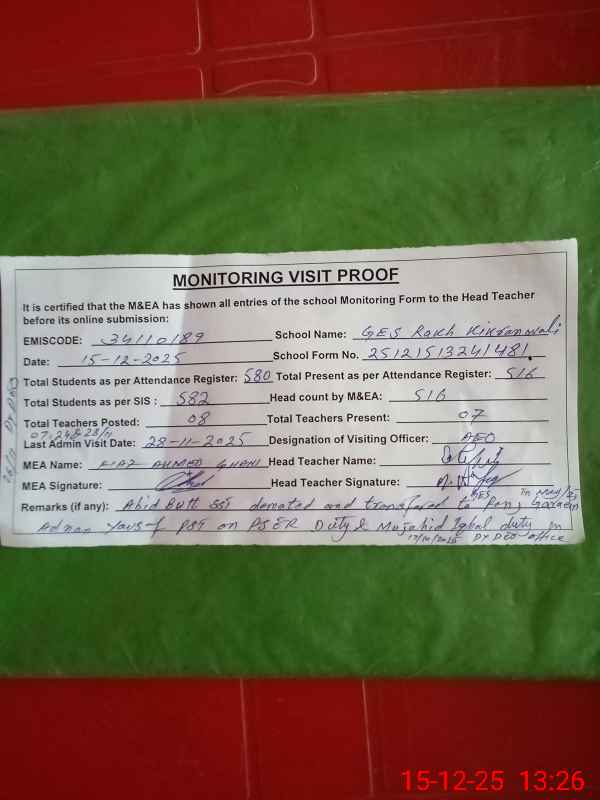 MONITORING VISIT PROOF
It is certified that the M&EA has shown all entries of the school Monitoring Form to the Head Teacher
before its online submission:
EMISCODE: 34110189 School Name: GES Rakh Kikranwali
Date: 15-12-2025 School Form No. 25121513241481
Total Students as per Attendance Register: 580 Total Present as per Attendance Register: 516
Total Students as per SIS : 582 Head count by M&EA: 516
Total Teachers Posted: 08 Total Teachers Present: 07
Last Admin Visit Date: 28-11-2025 Designation of Visiting Officer: AEO
MEA Name: FIAZ AHMED GHANI Head Teacher Name:
MEA Signature: Head Teacher Signature:
GES In May/25
Remarks (if any): Abid Butt SST and to
Adnan PST on PSER Duty & Mujahid Iqbal duty in
17/10/2025 Dy DEO office
15-12-25 13:26